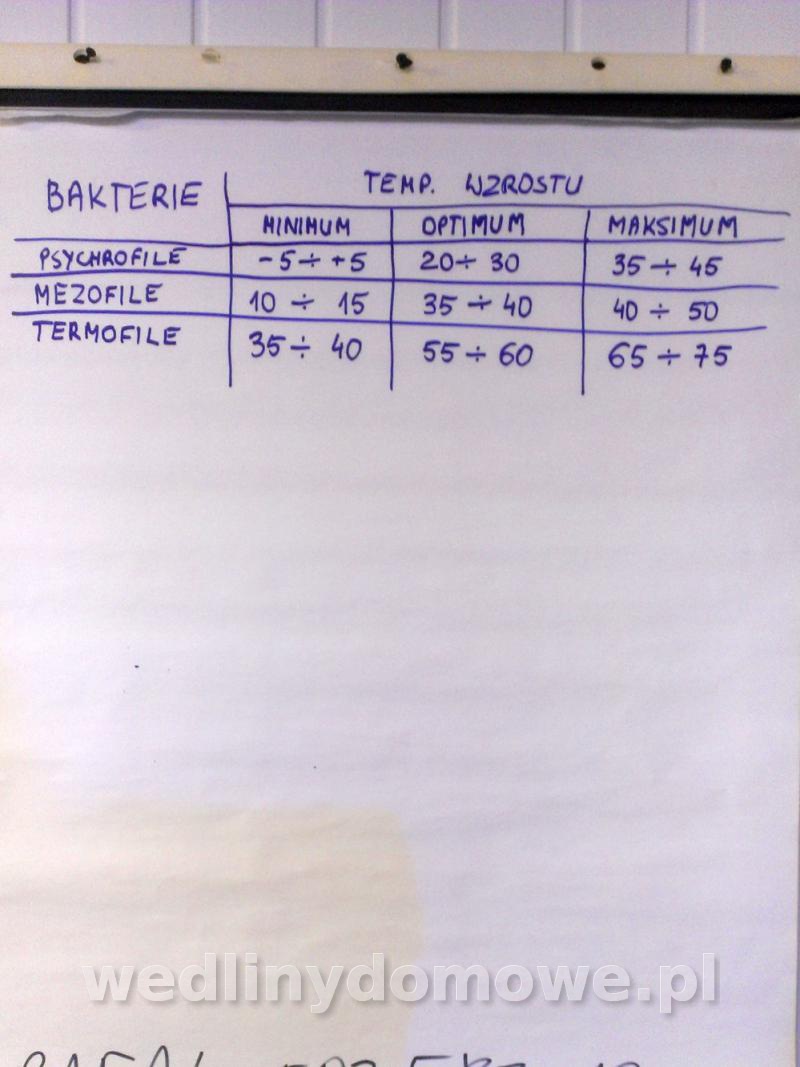 BAKTERIE TEMP. WZROSTU
MINIMUM OPTIMUM MAKSIMUM
PSYCHROFILE -5 ÷ +5 20 ÷ 30 35 ÷ 45
MEZOFILE 10 ÷ 15 35 ÷ 40 40 ÷ 50
TERMOFILE 35 ÷ 40 55 ÷ 60 65 ÷ 75
wedlinydomowe.pl